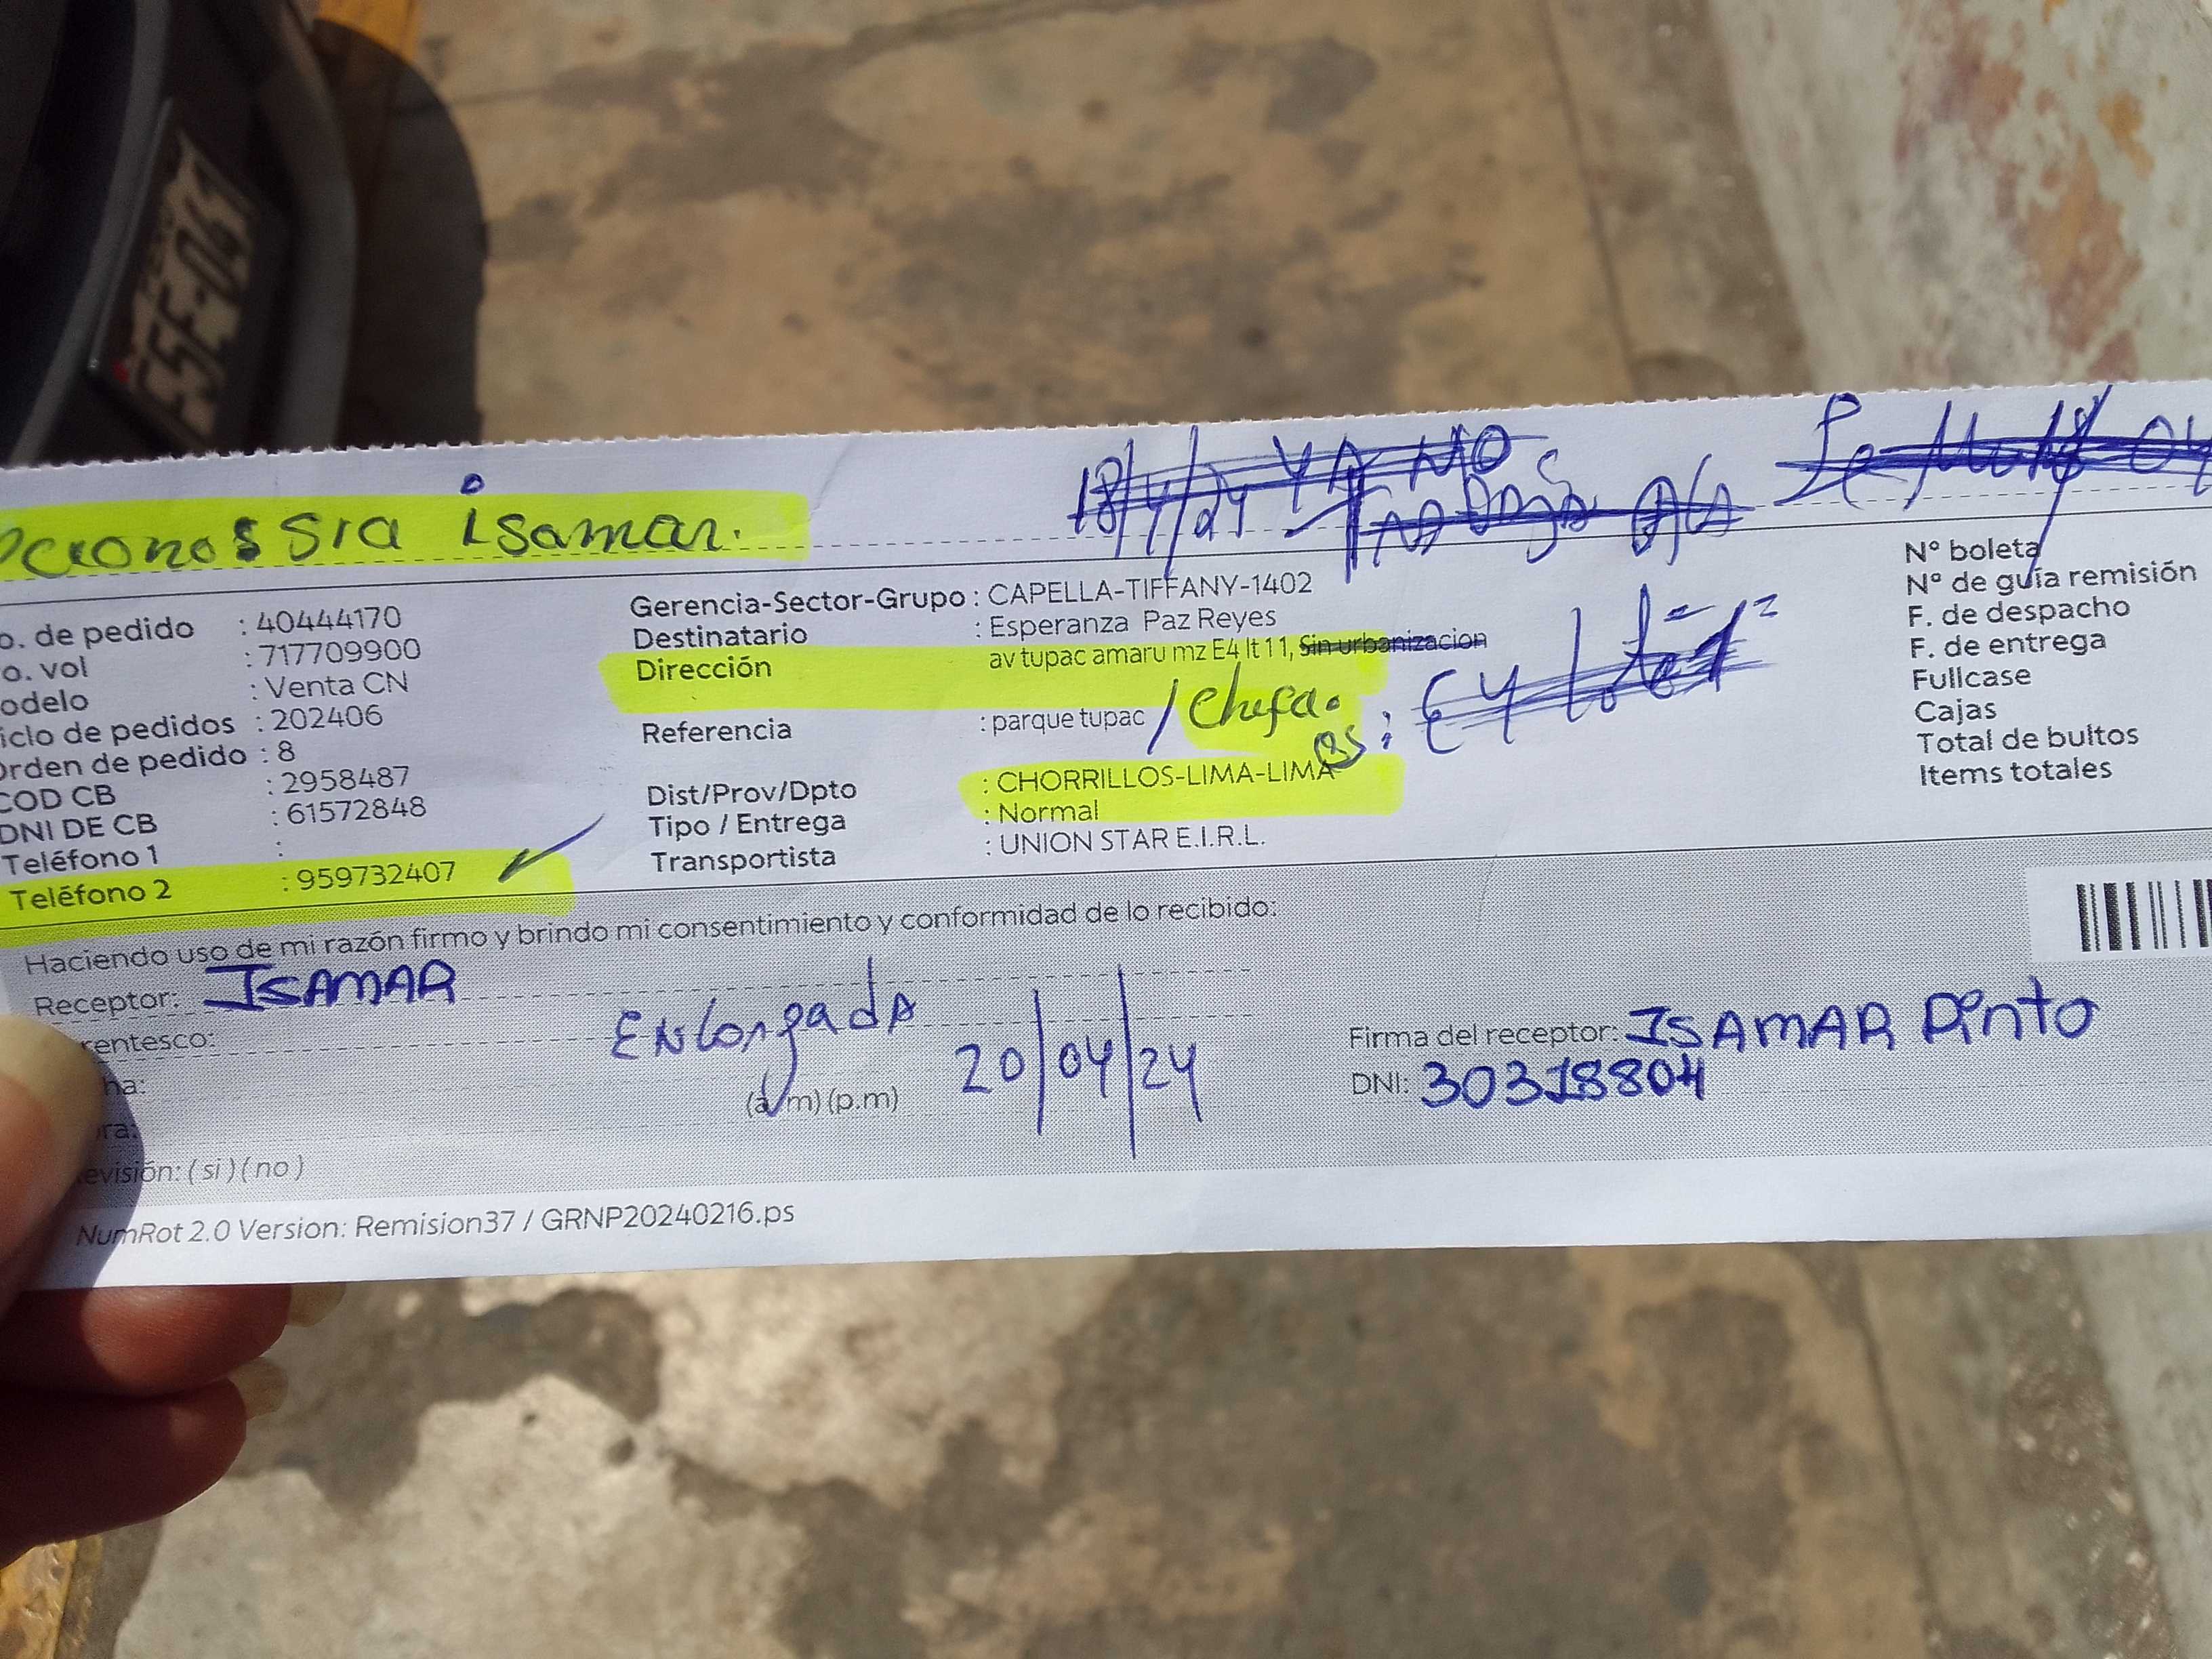 sra isamar.
18/4/24 YA NO
TRABAJA
o. de pedido : 40444170
o. vol : 717709900
odelo : Venta CN
iclo de pedidos : 202406
Orden de pedido : 8
COD CB : 2958487
DNI DE CB : 61572848
Teléfono 1 :
Teléfono 2 : 959732407
Gerencia-Sector-Grupo : CAPELLA-TIFFANY-1402
Destinatario : Esperanza Paz Reyes
Dirección av tupac amaru mz E4 lt 11, Sin urbanizacion
Referencia : parque tupac / Chifa.
Dist/Prov/Dpto : CHORRILLOS-LIMA-LIMA
Tipo / Entrega : Normal
Transportista : UNION STAR E.I.R.L.
N° boleta
N° de guía remisión
F. de despacho
F. de entrega
Fullcase
Cajas
Total de bultos
Items totales
Haciendo uso de mi razón firmo y brindo mi consentimiento y conformidad de lo recibido:
Receptor: ISAMAR
rentesco:
ha:
ra:
(a.m) (p.m)
20/04/24
Firma del receptor: ISAMAR Pinto
DNI: 30318804
evisión: ( si ) ( no )
NumRot 2.0 Version: Remision37 / GRNP20240216.ps